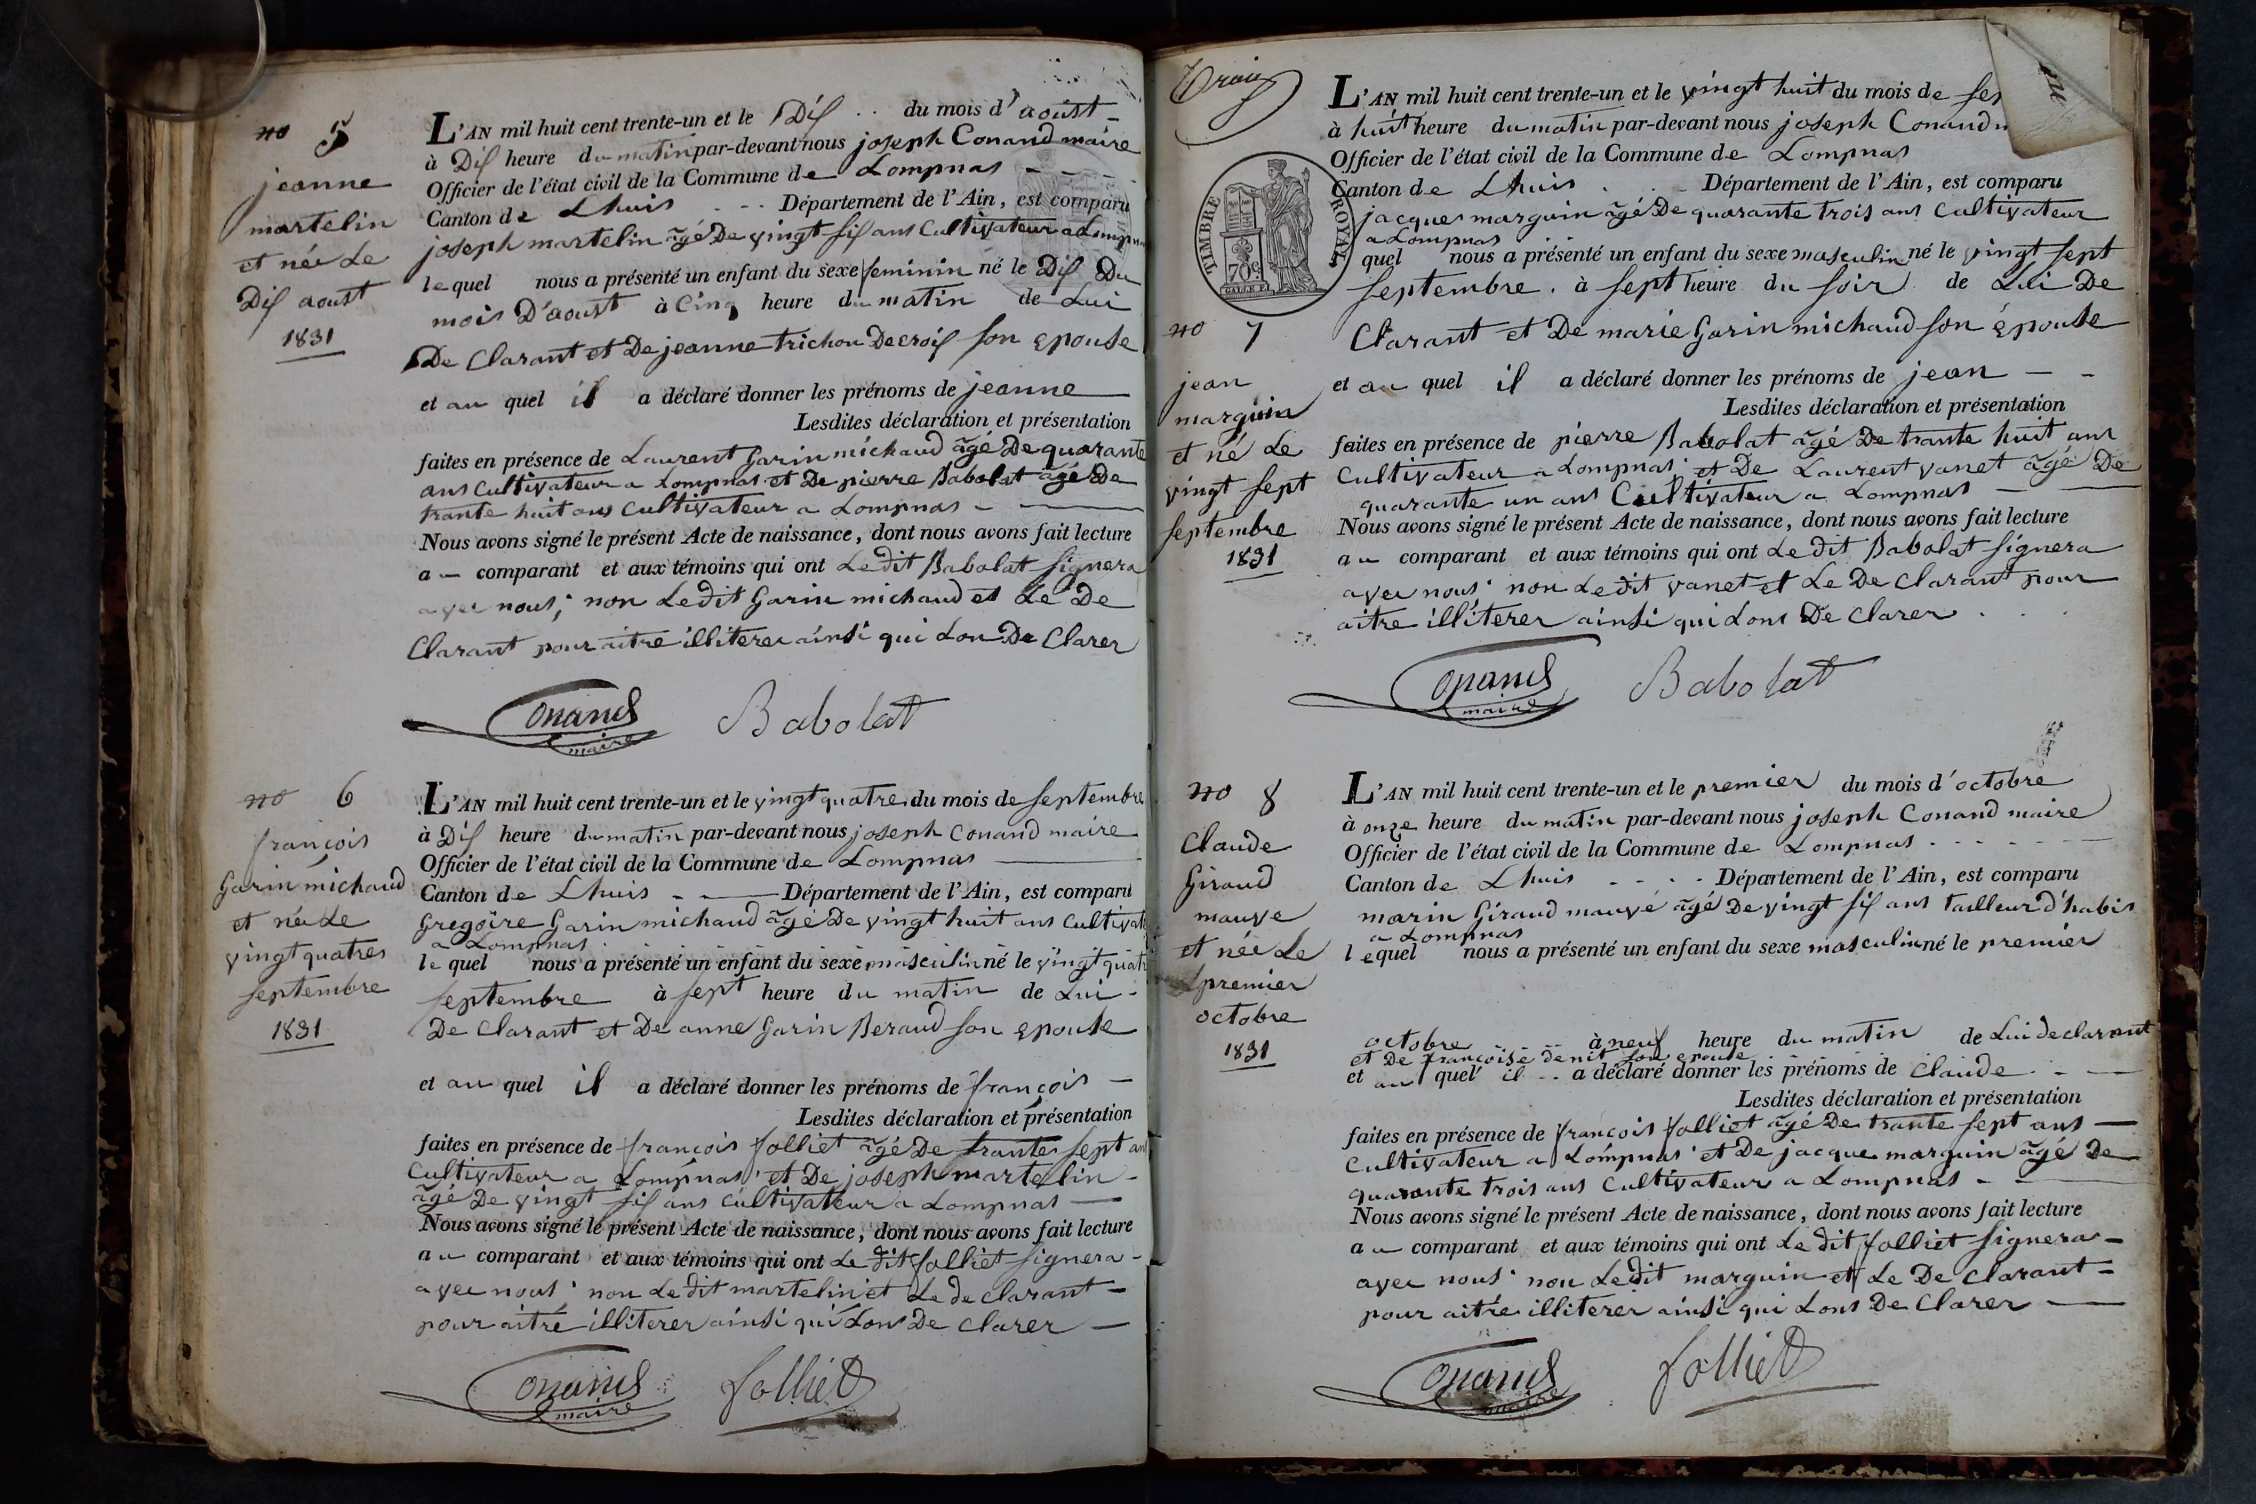 no 5
jeanne
martelin
et née Le
Dis aoust
1831
L'AN mil huit cent trente-un et le Dis du mois d'aoust
à Dis heure du matin par-devant nous joseph Conand maire
Officier de l'état civil de la Commune de Lompnas
Canton de Lhuis Département de l'Ain, est comparu
joseph martelin âgé De vingt sis ans Cultivateur a Lompnas
lequel nous a présenté un enfant du sexe feminin né le Dis Du
mois D'aoust à Cinq heure du matin de Lui
De Clarant et De jeanne trichon Decrois son epouse
et au quel il a déclaré donner les prénoms de jeanne
Lesdites déclaration et présentation
faites en présence de Laurent Garin michaud âgé De quarante
ans Cultivateur a Lompnas et De pierre Babolat âgé De
trante huit ans Cultivateur a Lompnas
Nous avons signé le présent Acte de naissance, dont nous avons fait lecture
au comparant et aux témoins qui ont Le dit Babolat signera
avec nous; non Ledit Garin michaud et Le De
Clarant pour aitre illiterer ainsi qui Lon De Clarer
Conand
maire
Babolat
no 6
françois
Garin michaud
et née Le
vingt quatres
septembre
1831
L'AN mil huit cent trente-un et le vingt quatres du mois de septembre
à Dis heure du matin par-devant nous joseph Conand maire
Officier de l'état civil de la Commune de Lompnas
Canton de Lhuis Département de l'Ain, est comparu
Gregoire Garin michaud âgé De vingt huit ans Cultivat
a Lompnas
le quel nous a présenté un enfant du sexe masculin né le vingt quatr
septembre à sept heure du matin de Lui
De Clarant et De anne Garin Beraud son epouse
et au quel il a déclaré donner les prénoms de françois
Lesdites déclaration et présentation
faites en présence de françois folliet âgé De trante sept ans
Cultivateur a Lompnas et De joseph martelin
âgé De vingt sis ans Cultivateur a Lompnas
Nous avons signé le présent Acte de naissance, dont nous avons fait lecture
au comparant et aux témoins qui ont Le dit folliet signera
avec nous non Ledit martelin et Le de clarant
pour aitre illiterer ainsi qui Lon De clarer
Conand
maire
folliet
TIMBRE ROYAL
70 c.
no 7
jean
marguin
et né Le
vingt sept
septembre
1831
L'AN mil huit cent trente-un et le vingt huit du mois de sep
à huit heure du matin par-devant nous joseph Conand
Officier de l'état civil de la Commune de Lompnas
Canton de Lhuis Département de l'Ain, est comparu
jacques marguin âgé De quarante trois ans Cultivateur
a Lompnas
quel nous a présenté un enfant du sexe masculin né le vingt sept
septembre à sept heure du soir de Lui De
Clarant et De marie Garin michaud son épouse
et au quel il a déclaré donner les prénoms de jean
Lesdites déclaration et présentation
faites en présence de pierre Babolat âgé De trante huit ans
Cultivateur a Lompnas et De Laurent vanet âgé De
quarante un ans Cultivateur a Lompnas
Nous avons signé le présent Acte de naissance, dont nous avons fait lecture
au comparant et aux témoins qui ont Le dit Babolat signera
avec nous non Le dit vanet et Le De Clarant pour
aitre illiterer ainsi qui Lons De Clarer
Conand
maire
Babolat
no 8
Claude
Giraud
mauve
et née Le
premier
octobre
1831
L'AN mil huit cent trente-un et le premier du mois d'octobre
à onze heure du matin par-devant nous joseph Conand maire
Officier de l'état civil de la Commune de Lompnas
Canton de Lhuis Département de l'Ain, est comparu
marin Giraud mauve âgé De vingt sis ans tailleur d'habis
a Lompnas
lequel nous a présenté un enfant du sexe masculin né le premier
octobre à neuf heure du matin de Lui declarant
et De françoise denit son epouse
et au quel il a déclaré donner les prénoms de Claude
Lesdites déclaration et présentation
faites en présence de françois folliet âgé De trante sept ans
Cultivateur a Lompnas et De jacque marguin âgé De
quarante trois ans Cultivateur a Lompnas
Nous avons signé le présent Acte de naissance, dont nous avons fait lecture
au comparant et aux témoins qui ont Le dit folliet signera
avec nous non Ledit marguin et Le De clarant
pour aitre illiterer ainsi qui Lons De Clarer
Conand
maire
folliet